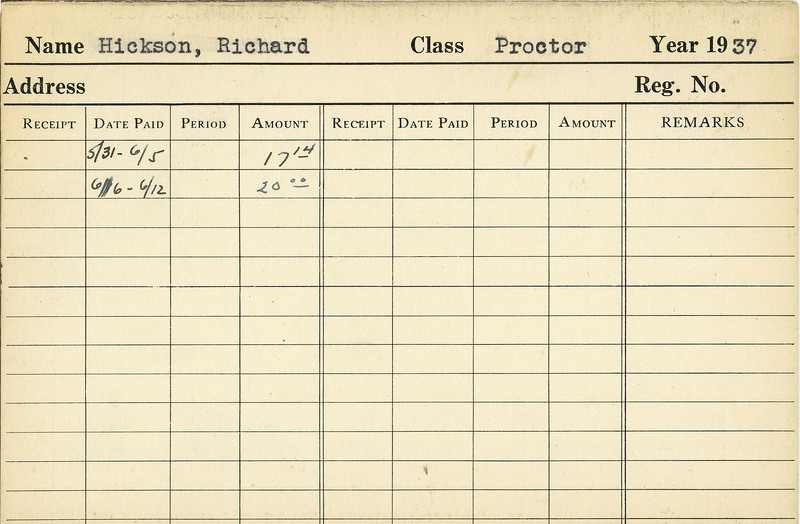 Name Hickson, Richard Class Proctor Year 1937
Address Reg. No.
RECEIPT DATE PAID PERIOD AMOUNT RECEIPT DATE PAID PERIOD AMOUNT REMARKS
5/31-6/5 17 14
6/6-6/12 20 00